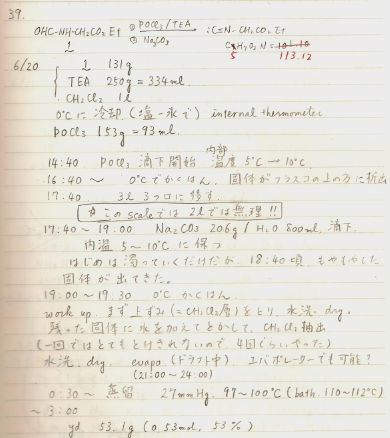 39.
OHC-NH-CH₂CO₂Et ① POCl₃/TEA ② Na₂CO₃ :C≡N-CH₂CO₂Et
1 C5H7O2N = 113.12
6/20 1 131g
TEA 250g = 334 ml
CH₂Cl₂ 1l
0℃に冷却 (塩-氷で) internal thermometer
POCl₃ 153g = 93 ml.
14:40 POCl₃ 滴下開始 内部温度 5℃→10℃.
16:40 ~ 0℃でかくはん. 固体がフラスコの上の方に析出
17:40 3l 3つ口に移す.
☆このscaleでは2lでは無理!!
17:40~19:00 Na₂CO₃ 206g / H₂O 800ml, 滴下.
内温 5~10℃に保つ
はじめは濁っていくだけだが, 18:40頃 もやもやした
固体が出てきた.
19:00~19:30 0℃ かくはん.
work up. まず上ずみ(=CH₂Cl₂層)をとり, 水洗. dry.
残った固体に水を加えてとかして, CH₂Cl₂抽出
(一回ではとてもとけきれないので, 4回ぐらいやった)
水洗. dry. evapo. (ドラフト中) エバポレーターでも可能?
(21:00~24:00)
0:30~ 蒸留 27mmHg, 97~100℃ (bath. 110~112℃)
~3:00
yd 53.1g (0.53mol, 53%)